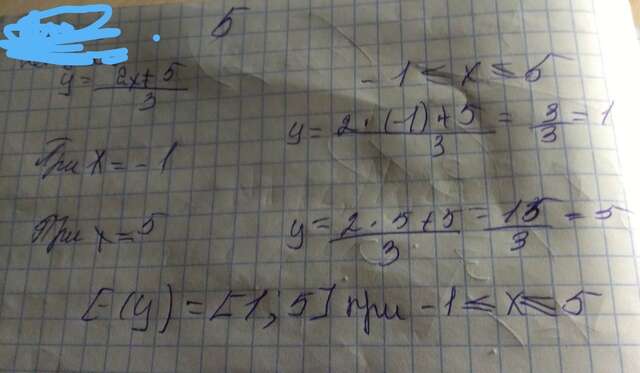 5
y = (2x + 5)/3    -1 ≤ x ≤ 5
При x = -1    y = (2 · (-1) + 5)/3 = 3/3 = 1
При x = 5    y = (2 · 5 + 5)/3 = 15/3 = 5
E(y) = [1; 5] при -1 ≤ x ≤ 5